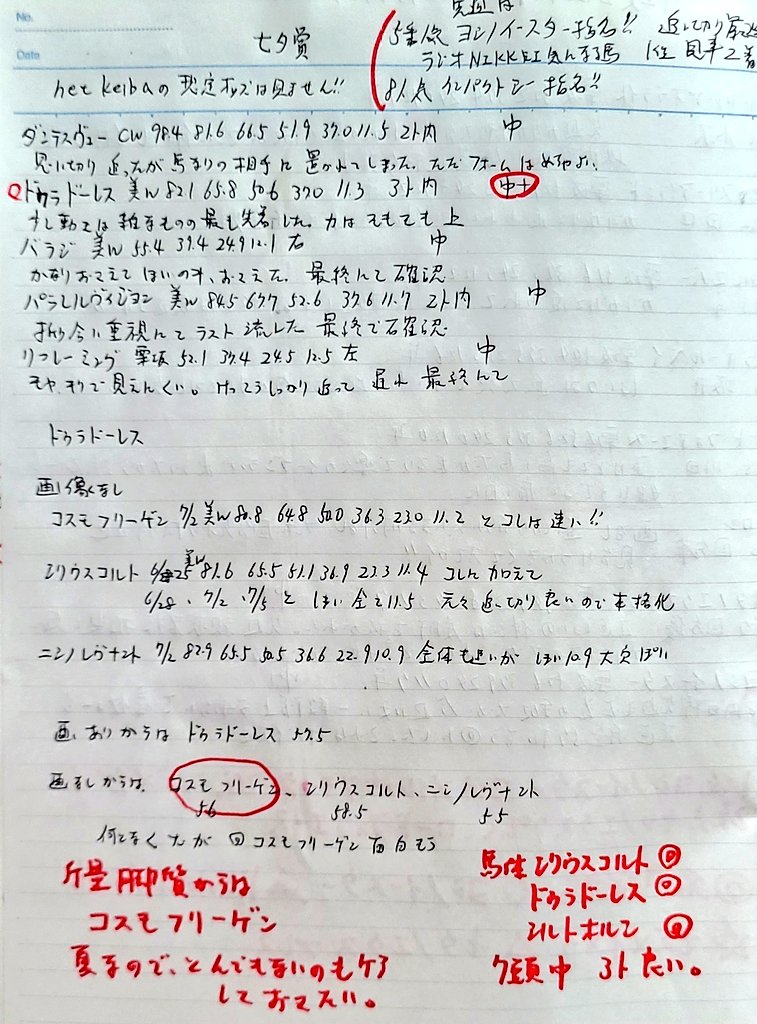 No.
Date
先週は
七夕賞
5番人気 ヨシノイースター指名!! 追い切り
ラジオNIKKEI 馬
8人気 インパクトシー 指名!!
net keibaの想定オッズは見ません!!
ダンテスヴュー CW 98.4 81.6 66.5 51.9 37.0 11.5 2ト内 中
思い切り追ったが 相手に置かれてしまった。ただフォームは
ドゥラドーレス 美W 82.1 65.8 50.6 37.0 11.3 3ト内 中+
少し動えは雑なものの最も先着した。力はとても上
バラジ 美W 55.4 39.4 24.9 12.1 右 中
かなりおさえて おさえた。最終んて確認
パラレルヴィジョン 美W 84.5 67.7 52.6 37.6 11.7 2ト内 中
折り合い重視んてラスト流した 最終で確認
リフレーミング 栗坂 52.1 37.4 24.5 12.5 左 中
モヤ 見えんくい。けっこうしっかり追って 遅れ 最終んて
ドゥラドーレス
画像なし
コスモフリーゲン 7/2 美W 80.8 64.8 50.0 36.3 23.0 11.2 とコレは速い!!
シリウスコルト 6/25 美W 81.6 65.5 51.1 36.9 23.3 11.4 コレに加えて
6/28、7/2、7/5と しまい全て11.5 元々追い切り良いので本格化
ニシノレヴナント 7/2 82.9 65.5 50.5 36.6 22.9 10.9 全体も速いが しまい10.9 大欠ぽい
画ありからは ドゥラドーレス 57.5
画なしからは、コスモフリーゲン、シリウスコルト、ニシノレヴナント
56 58.5 55
何となくだが コスモフリーゲン面白そう
斤量脚質からは
コスモフリーゲン
夏なので、とんでもないのもケア
しておきたい。
馬体 シリウスコルト ◎
ドゥラドーレス ◎
シルトホルン ◎
7頭中 3ト良い。